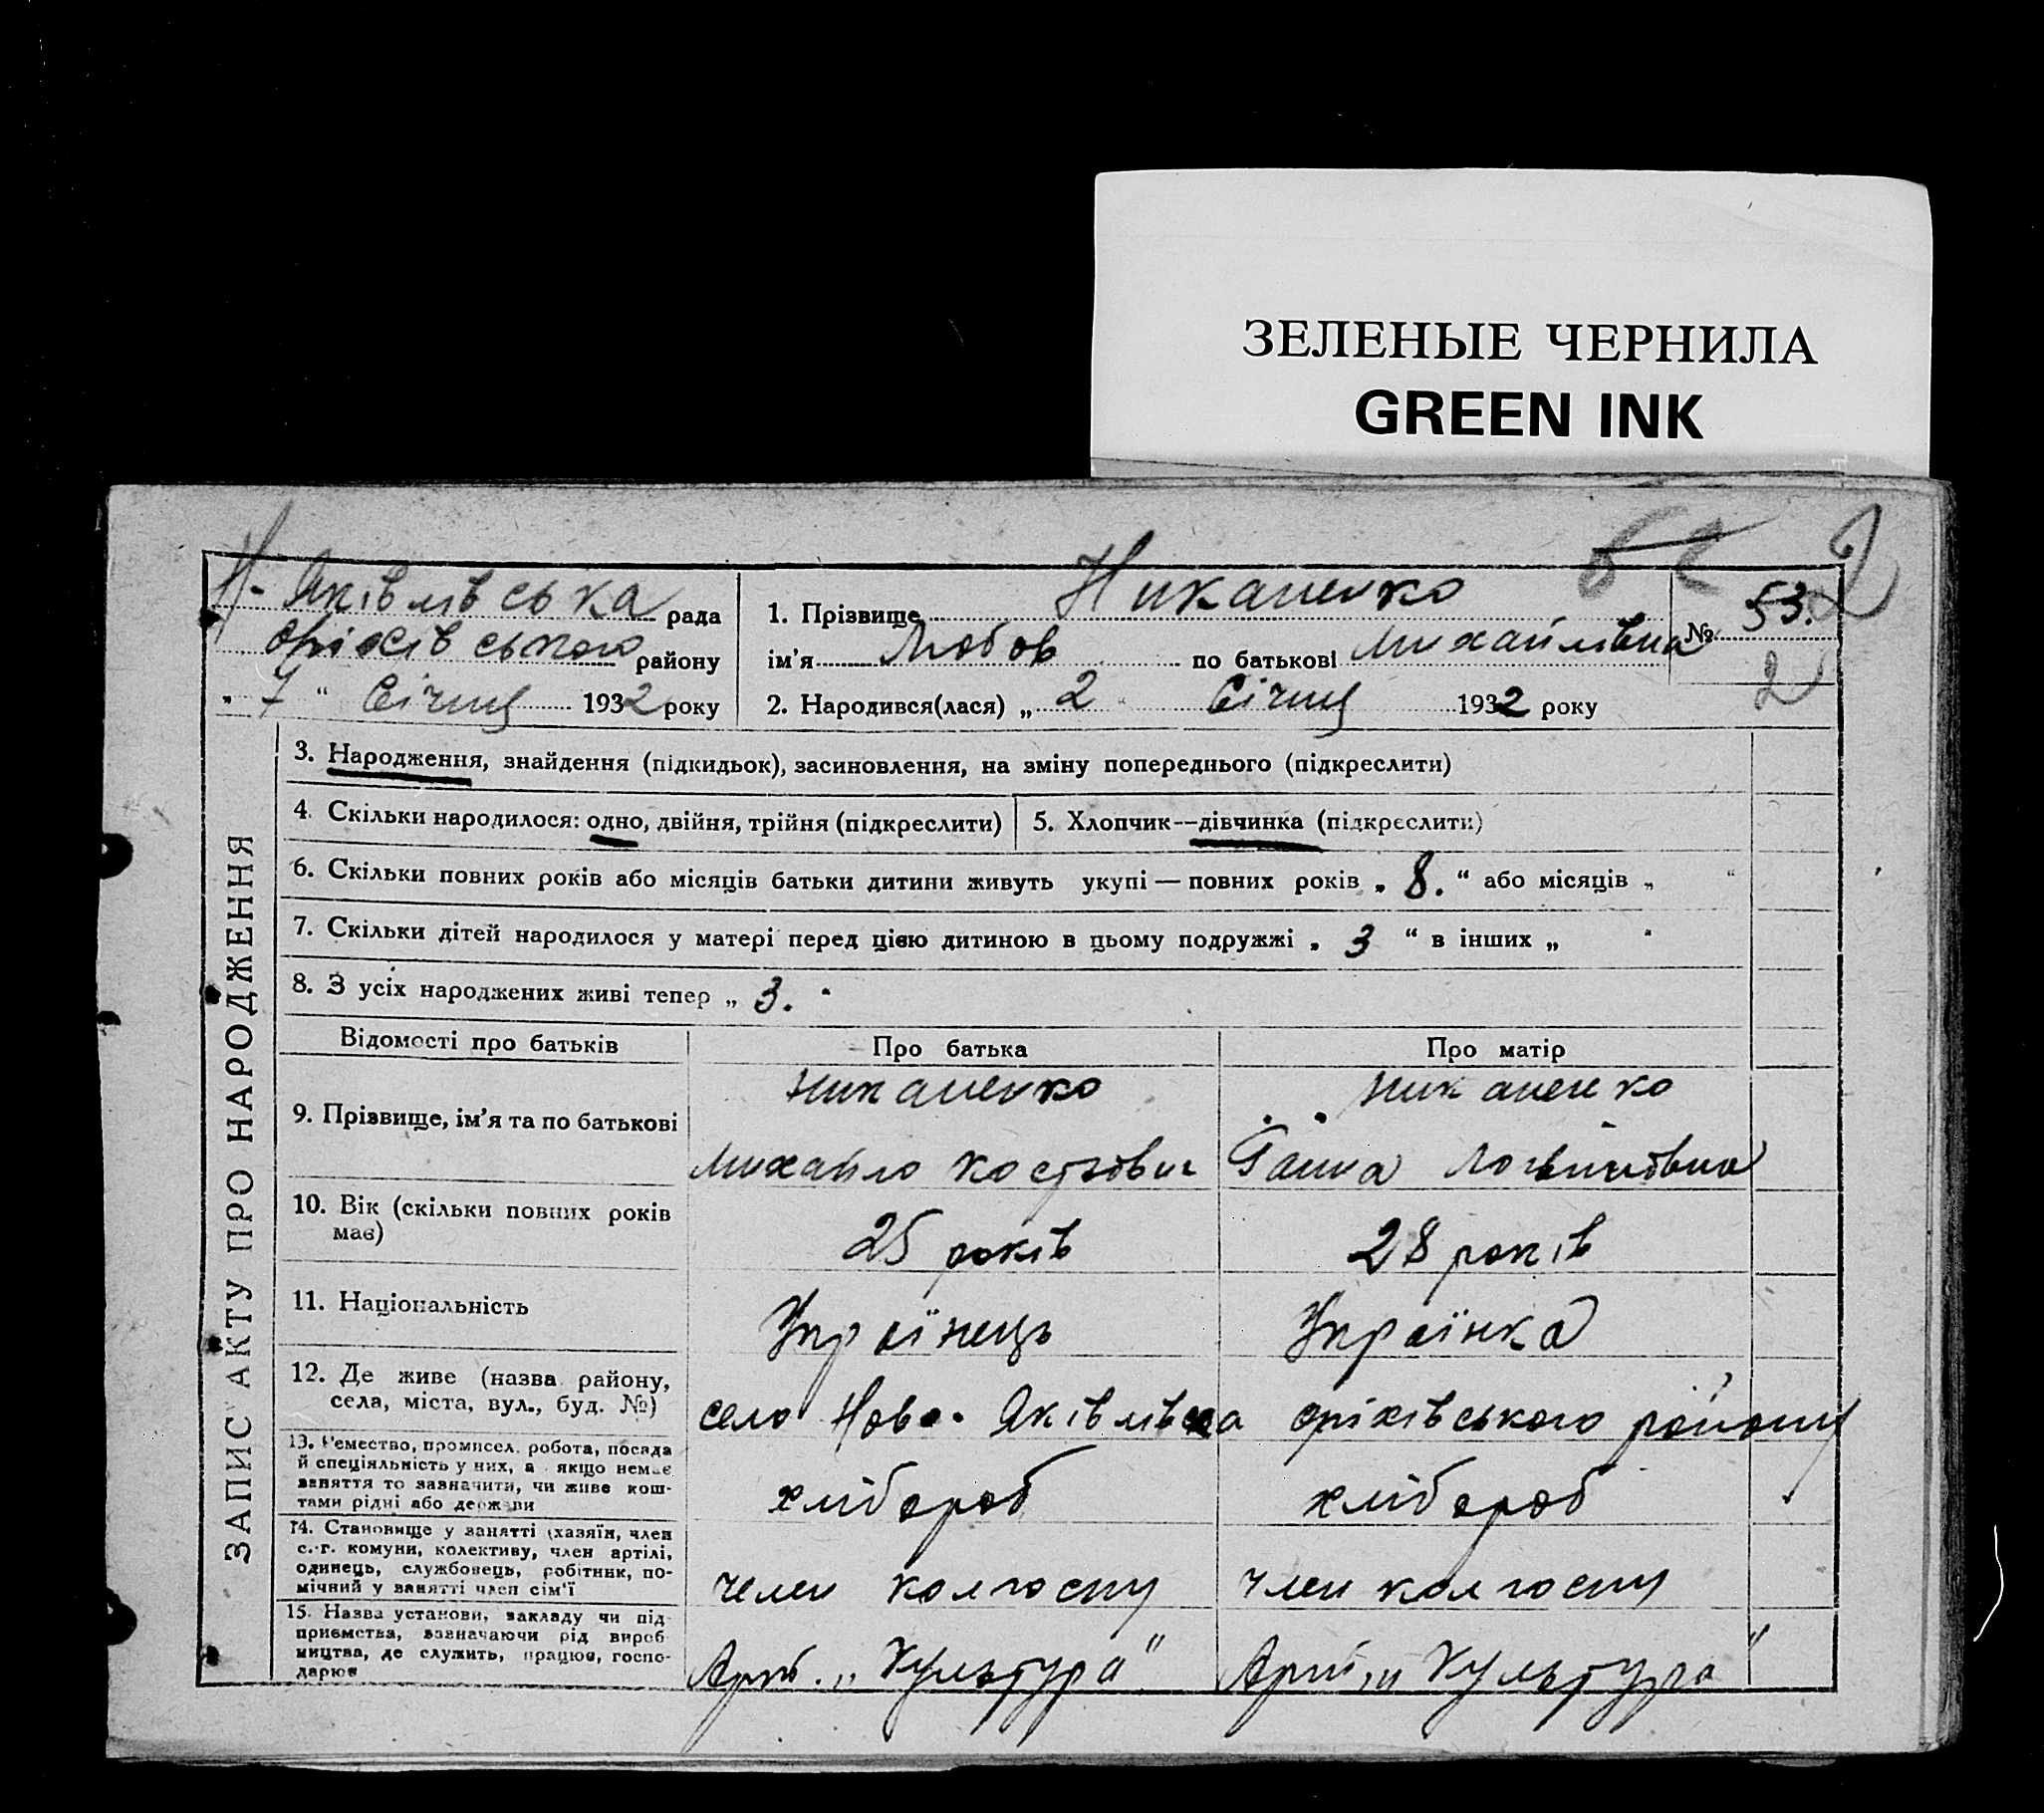 ЗЕЛЕНЫЕ ЧЕРНИЛА
GREEN INK
2
Н-Яківлівська рада
Оріхівського району
„ 7 “ Січня 1932 року
1. Прізвище Никаненко
ім'я Любов по батькові Михайлівна
№ 53.
2
2. Народився(лася) „ 2 “ Січня 1932 року
ЗАПИС АКТУ ПРО НАРОДЖЕННЯ
3. Народження, знайдення (підкидьок), засиновлення, на зміну попереднього (підкреслити)
4. Скільки народилося: одно, двійня, трійня (підкреслити)
5. Хлопчик—дівчинка (підкреслити)
6. Скільки повних років або місяців батьки дитини живуть укупі — повних років „ 8. “ або місяців „ “
7. Скільки дітей народилося у матері перед цією дитиною в цьому подружжі „ 3 “ в інших „ “
8. З усіх народжених живі тепер „ 3. “
Відомості про батьків
Про батька
Про матір
9. Прізвище, ім'я та по батькові
Никаненко
Михайло
Никаненко
Ганна Логвинівна
10. Вік (скільки повних років
має)
25 років
28 років
11. Національність
Українець
Українка
12. Де живе (назва району,
села, міста, вул., буд. №)
село Ново-Яківлівка оріхівського району
13. Ремество, промисел, робота, посада
й спеціяльність у них, а якщо немає
заняття то зазначити, чи живе кош-
тами рідні або держави
хлібороб
хлібороб
14. Становище у занятті (хазяїн, член
с.-г. комуни, колективу, член артілі,
одинець, службовець, робітник, по-
мічний у занятті член сім'ї
челен колгоспу
член колгоспу
15. Назва установи, закладу чи під-
приємства, зазначаючи рід вироб-
ництва, де служить, працює, госпо-
дарює
Арті. „Культура"
Арті „Культура"